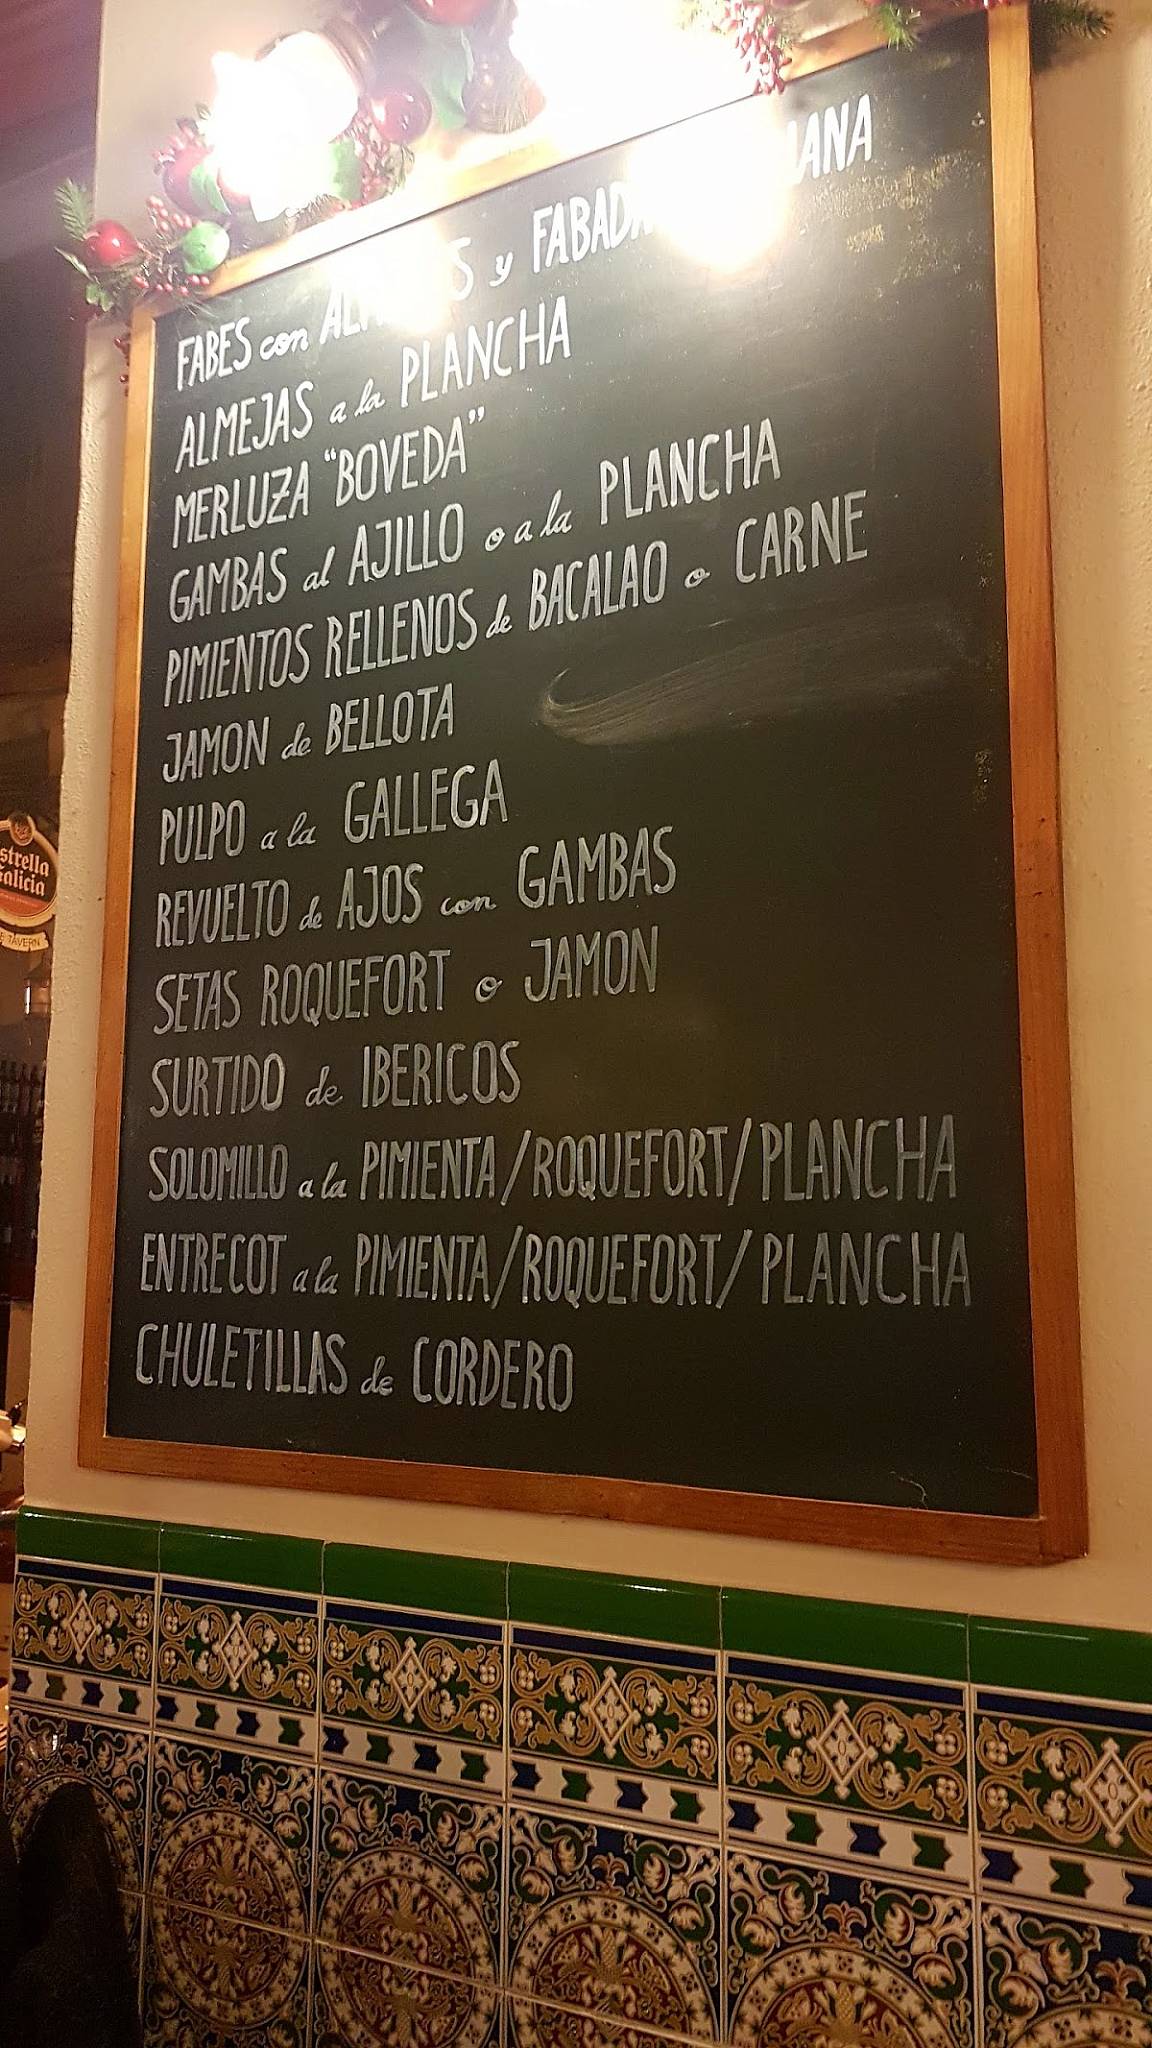 FABES con y FABADA
ALMEJAS a la PLANCHA
MERLUZA "BOVEDA"
GAMBAS al AJILLO o a la PLANCHA
PIMIENTOS RELLENOS de BACALAO o CARNE
JAMON de BELLOTA
PULPO a la GALLEGA
REVUELTO de AJOS con GAMBAS
SETAS ROQUEFORT o JAMON
SURTIDO de IBERICOS
SOLOMILLO a la PIMIENTA/ROQUEFORT/PLANCHA
ENTRECOT a la PIMIENTA/ROQUEFORT/PLANCHA
CHULETILLAS de CORDERO
strella
alicia
TAVERN